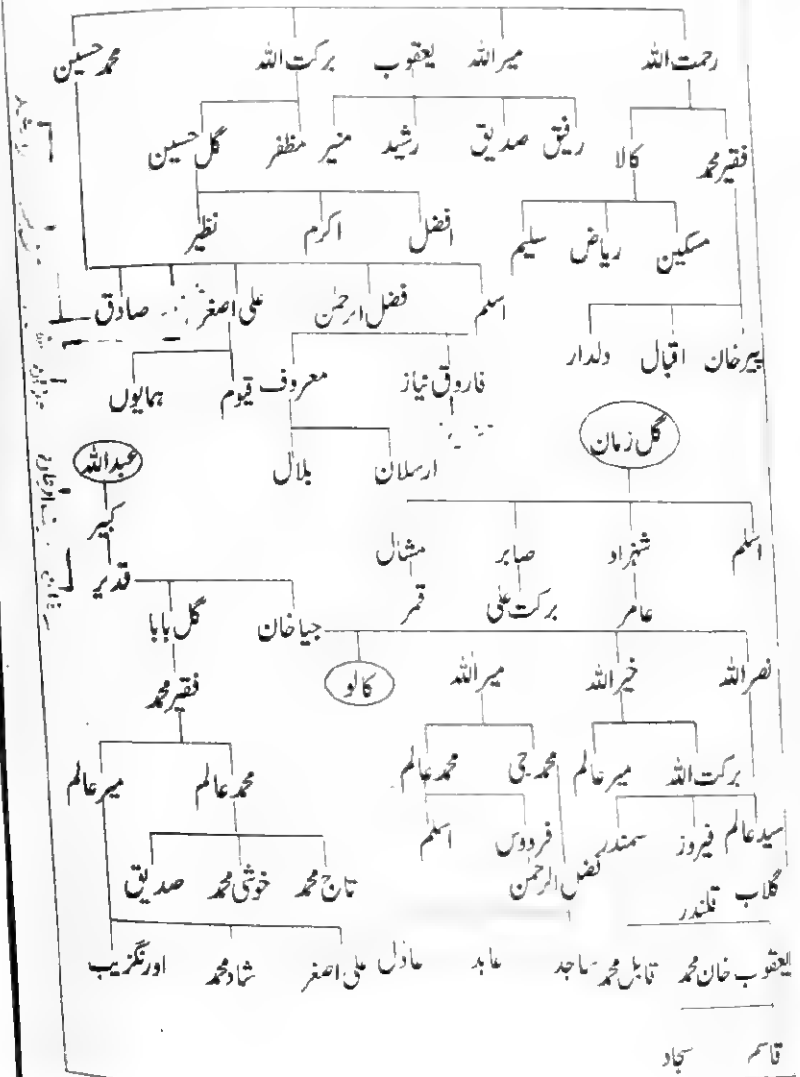 رحمت اللہ میر اللہ یعقوب برکت اللہ محمد حسین
رفیق صدیق رشید منیر مظفر گل حسین
فقیر محمد کالا
افضل اکرم نظیر
مسکین ریاض سلیم
اسلم فضل الرحمٰن علی اصغر صادق
پیر خان اقبال دلدار
فاروق نیاز معروف قیوم ہمایوں
گل زمان
ارسلان بلال
عبداللہ
کبیر
اسلم شہزاد صابر مشال
قدیر
عامر برکت علی قمر
جیا خان گل بابا
نصر اللہ خیر اللہ میر اللہ کالو
فقیر محمد
برکت اللہ میر عالم محمد جی محمد عالم
محمد عالم میر عالم
سید عالم فیروز سمندر فردوس اسلم
گلاب قلندر فضل الرحمٰن
تاج محمد خوشی محمد صدیق
یعقوب خان محمد قابل محمد ساجد عابد عادل علی اصغر شاد محمد اورنگزیب
قاسم سجاد